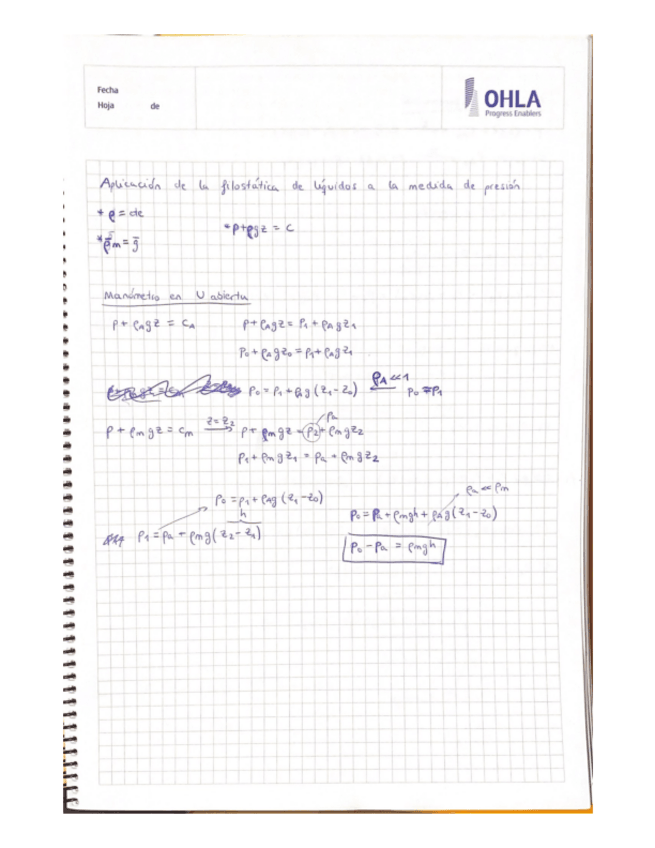 Fecha
Hoja de
OHLA
Progress Enablers
Aplicación de la filostática de líquidos a la medida de presión
* ρ = cte
* p + ρgz = C
Manómetro en U abierta
p + ρAgz = CA
p + ρAgz = p1 + ρAgz1
p0 + ρAgz0 = p1 + ρAgz1
p0 = p1 + ρAg(z1 - z0) ρA << 1 p0 = p1
p + ρmgz = Cm z = z2 → p + ρmgz = p2 + ρmgz2
pa
p1 + ρmgz1 = pa + ρmgz2
p0 = p1 + ρAg(z1 - z0)
h
p1 = pa + ρmg(z2 - z1)
ρa << ρm
p0 = pa + ρmgh + ρAg(z1 - z0)
p0 - pa = ρmgh